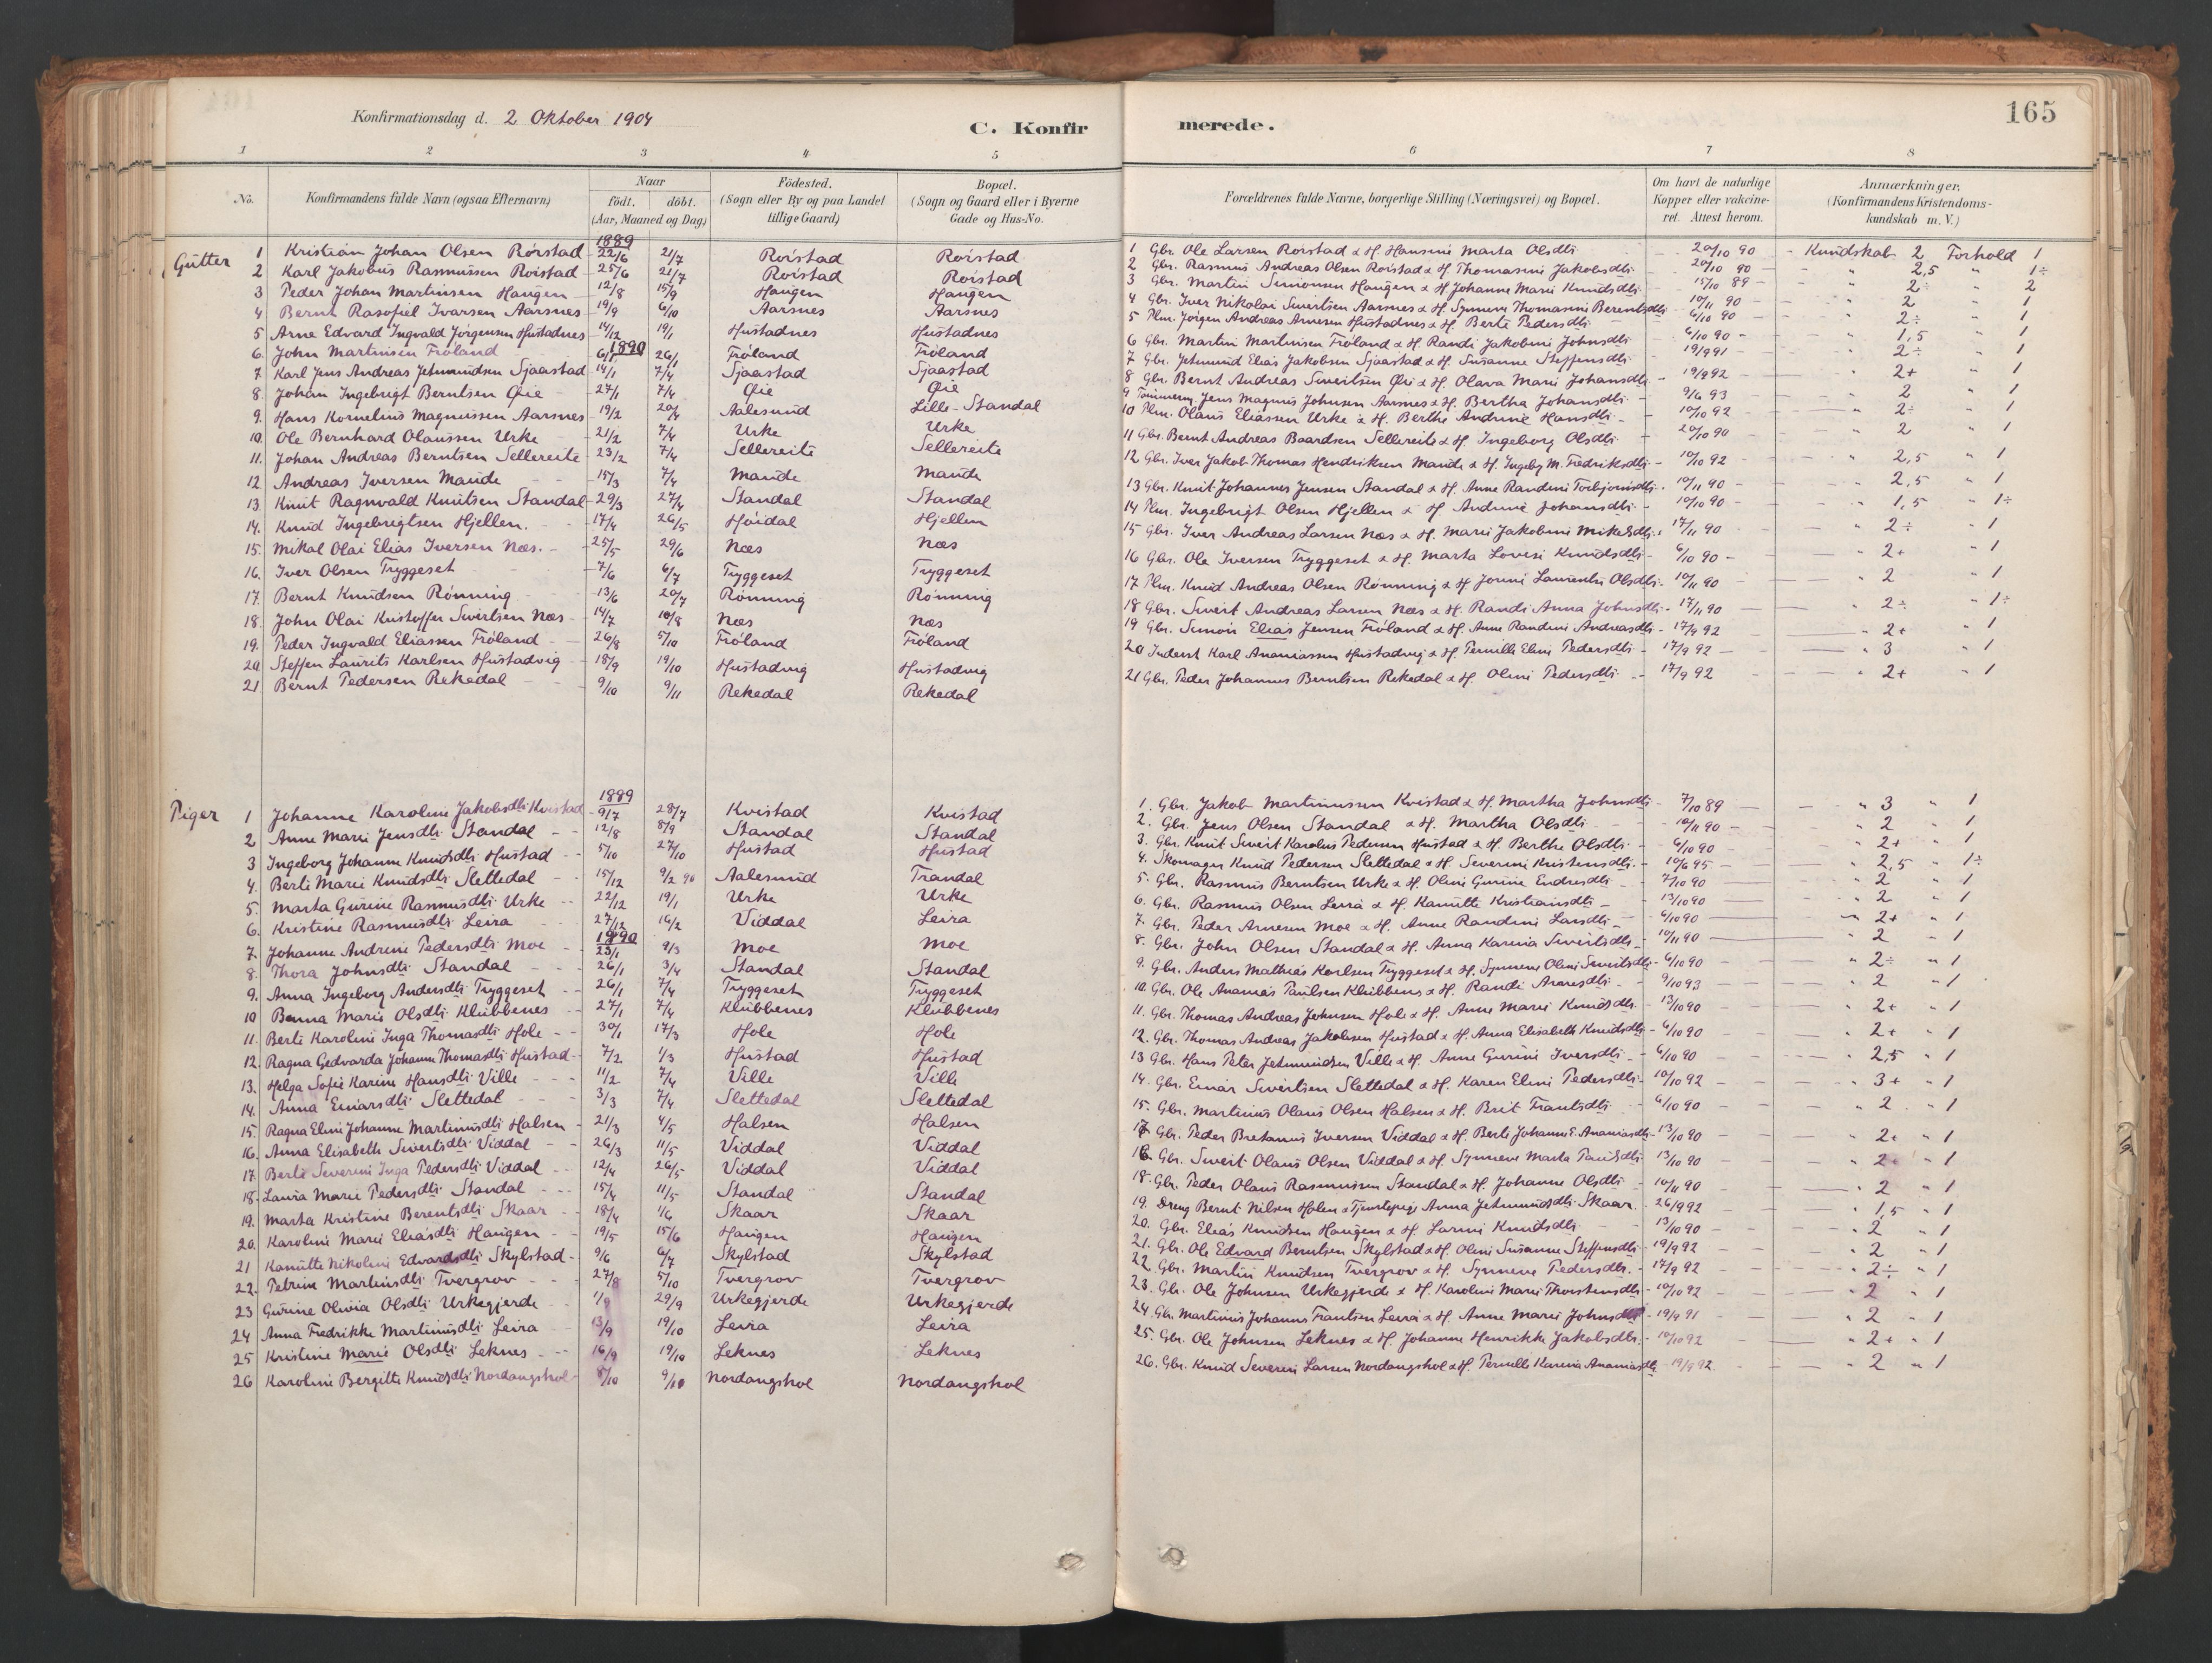 165
Konfirmationsdag d. 2 Oktober 1904
C. Konfirmerede.
1 2 3 4 5 6 7 8
No. Konfirmandens fulde Navn (ogsaa Efternavn) Naar født. døbt. (Aar, Maaned og Dag) Födested. (Sogn eller By og paa Landet tillige Gaard) Bopæl. (Sogn og Gaard eller i Byerne Gade og Hus-No. Forældrenes fulde Navne, borgerlige Stilling (Næringsvei) og Bopæl. Om havt de naturlige Kopper eller vakcineret. Attest herom. Anmærkninger. (Konfirmandens Kristendomskundskab m. V.)
Gutter
1889
1 Kristian Johan Olsen Rörstad 22/6 21/7 Roistad Roistad 1 Gbr. Ole Larsen Roistad & H. Hansine Marta Olsdtr 20/10 90 Kundskab 2 Forhold 1
2 Karl Jakobus Rasmussen Roistad 25/6 21/7 Roistad Roistad 2 Gbr. Rasmus Andreas Olsen Roistad & H Thomasine Jakobsdtr 20/10 90 " 2,5 " 1÷
3 Peder Johan Martinsen Haugen 12/8 15/9 Haugen Haugen 3 Gbr. Martin Simonsen Haugen & H Johanne Marie Knudsdtr 15/10 89 " 2÷ " 2
4 Bernt Rasofiel Ivarsen Aarsnes 19/9 6/10 Aarsnes Aarsnes 4 Gbr. Iver Nikolai Sivertsen Aarsnes & H. Synneve Thomasine Berentsdtr 10/11 90 " 2 " 1
5 Arne Edvard Ingvald Jörgensen Hustadnes 14/12 19/1 Hustadnes Hustadnes 5 Plm. Jörgen Andreas Arnesen Hustadnes & H. Berte Pedersdtr 6/10 90 " 2÷ " 1
1890
6. John Martinsen Fröland 6/1 26/1 Fröland Fröland 6 Gbr. Martin Martinsen Fröland & H. Randi Jakobine Johnsdtr 6/10 90 " 1,5 " 1
7 Karl Jens Andreas Jetmundsen Sjaastad 14/1 7/4 Sjaastad Sjaastad 7 Gbr. Jetmund Elias Jakobsen Sjaastad & H. Susanne Steffensdtr 19/9 91 " 2÷ " 1
8. Johan Ingebrigt Berntsen Øie 27/1 7/4 Øie Øie 8 Gbr. Bernt Andreas Sivertsen Øie & H. Olava Marie Johansdtr 19/9 92 " 2+ " 1
9. Hans Kornelius Magnussen Aarsnes 19/2 20/4 Aalesund Lille-Standal 9 Tömmerm. Jens Magnus Johnsen Aarsnes & H. Bertha Johansdtr 9/6 93 " 2 " 1
10. Ole Bernhard Olaussen Urke 21/2 7/4 Urke Urke 10 Plm. Olaus Eliassen Urke & H. Berthe Andrine Hansdtr 10/10 92 " 2÷ " 1
11. Johan Andreas Berntsen Sellereite 23/2 7/4 Sellereite Sellereite 11 Gbr. Bernt Andreas Baardsen Sellereite & H. Ingeborg Olsdtr 20/10 90 " 2 " 1
12. Andreas Iversen Maude 15/3 7/4 Maude Maude 12 Gbr. Iver Jakob Thomas Hendriksen Maude & H. Ingebg M. Fredriksdtr 10/10 92 " 2,5 " 1
13. Knut Ragnvald Knutsen Standal 29/3 27/4 Standal Standal 13 Gbr. Knut Johannes Jensen Standal & H. Anne Randine Torbjörnsdtr 10/11 90 " 2,5 " 1
14. Knud Ingebrigtsen Hjellen. 17/4 26/5 Höidal Hjellen 14 Plm. Ingebrigt Olsen Hjellen & H. Andrine Johansdtr 10/10 90 " 1,5 " 1÷
15. Mikal Olai Elias Iversen Næs. 25/5 29/6 Næs Næs 15 Gbr. Iver Andreas Larsen Næs & H. Marie Jakobine Mikelsdtr 17/11 90 " 2÷ " 1
16. Iver Olsen Tryggeset 7/6 6/7 Tryggeset Tryggeset 16 Gbr. Ole Iversen Tryggeset & H. Marta Lovise Knudsdtr 6/10 90 " 2+ " 1
17. Bernt Knudsen Rönning 13/6 20/7 Rönning Rönning 17 Plm. Knud Andreas Olsen Rönning & H Jonine Laurentse Olsdtr 10/11 90 " 2 " 1
18. John Olai Kristoffer Sivertsen Næs 14/7 10/8 Næs Næs 18 Gbr. Sivert Andreas Larsen Næs & H. Randi Anna Johnsdtr 17/11 90 " 2÷ " 1÷
19. Peder Ingvald Eliassen Fröland 26/8 5/10 Fröland Fröland 19 Gbr. Simon Elias Jensen Fröland & H. Anne Randine Andreasdtr 17/9 92 " 2+ " 1
20. Steffen Laurits Karlsen Hustadvig 18/9 19/10 Hustadvig Hustadvig 20 Inderst Karl Ananiassen Hustadvig & H. Pernille Eline Pedersdtr 17/9 92 " 3 " 1
21 Bernt Pedersen Rekedal 9/10 9/11 Rekedal Rekedal 21 Gbr. Peder Johannes Berntsen Rekedal & H. Oline Pedersdtr 17/9 92 " 2+ " 1
Piger
1889
1 Johanne Karoline Jakobsdtr Kvistad 9/7 28/7 Kvistad Kvistad 1. Gbr. Jakob Martinussen Kvistad & H. Martha Johnsdtr 7/10 89 " 3 " 1
2 Anne Marie Jensdtr Standal 12/8 8/9 Standal Standal 2. Gbr. Jens Olsen Standal & H. Martha Olsdtr 10/11 90 " 2 " 1
3 Ingeborg Johanne Knudsdtr Hustad 5/10 27/10 Hustad Hustad 3. Gbr. Knut Sivert Karolus Pedersen Hustad & H. Berthe Olsdtr 6/10 90 " 2+ " 1
4. Berte Marie Knudsdtr Slettedal 15/12 9/2 90 Aalesund Trandal 4. Skomager Knud Pedersen Slettedal & H. Severine Kristensdtr 10/6 95 " 2,5 " 1÷
5. Marta Gurine Rasmusdtr Urke 22/12 19/1 Urke Urke 5. Gbr. Rasmus Berntsen Urke & H. Oline Gurine Endresdtr 7/10 90 " 2 " 1
6. Kristine Rasmusdtr Leira 27/12 16/2 Viddal Leira 6. Gbr. Rasmus Olsen Leira & H. Kanutte Kristiansdtr 13/10 90 " 2 " 1
1890
7. Johanne Andrine Pedersdtr Moe 23/1 9/3 Moe Moe 7. Gbr. Peder Arnesen Moe & H. Anne Randine Larsdtr 6/10 90 " 2+ " 1
8. Thora Johnsdtr Standal 26/1 3/4 Standal Standal 8. Gbr. John Olsen Standal & H. Anna Karina Sivertsdtr 10/11 90 " 2 " 1
9. Anna Ingeborg Andersdtr Tryggeset 26/1 7/4 Tryggeset Tryggeset 9. Gbr. Anders Mathias Karlsen Tryggeset & H. Synneve Oline Sivertsdtr 6/10 90 " 2÷ " 1
10 Benna Marie Olsdtr Klubbenes 27/1 7/4 Klubbenes Klubbenes 10. Gbr. Ole Ananias Paulsen Klubbenes & H. Randi Arnesdtr 9/10 93 " 2 " 1
11. Berte Karoline Inga Thomasdtr Hole 30/1 17/3 Hole Hole 11. Gbr. Thomas Andreas Johnsen Hole & H. Anne Marie Knudsdtr 13/10 90 " 2+ " 1
12. Ragna Gedvarda Johanne Thomasdtr Hustad 7/2 1/3 Hustad Hustad 12. Gbr. Thomas Andreas Jakobsen Hustad & H. Anna Elisabeth Knudsdtr 6/10 90 " 2+ " 1
13. Helga Sofie Karine Hansdtr Ville 11/2 7/4 Ville Ville 13 Gbr. Hans Peter Jetmundsen Ville & H. Anne Gurine Iversdtr 6/10 90 " 2,5 " 1
14. Anna Einarsdtr Slettedal 3/3 7/4 Slettedal Slettedal 14. Gbr. Einar Sivertsen Slettedal & H. Karen Eline Pedersdtr 10/10 92 " 3+ " 1
15. Ragna Eline Johanne Martinusdtr Halsen 21/3 4/5 Halsen Halsen 15. Gbr. Martinus Olaus Olsen Halsen & H. Brit Frantsdtr 6/10 90 " 2 " 1
16. Anna Elisabeth Sivertsdtr Viddal 26/3 11/5 Viddal Viddal 17 Gbr. Peder Bretanus Iversen Viddal & H. Berte Johanne E. Ananiasdtr 13/10 90 " 2+ " 1
17. Berte Severine Inga Pedersdtr Viddal 12/4 26/5 Viddal Viddal 16. Gbr. Sivert Olaus Olsen Viddal & H. Synneve Marta Paulsdtr 13/10 90 " 2+ " 1
18. Laura Marie Pedersdtr Standal 15/4 11/5 Standal Standal 18. Gbr. Peder Olaus Rasmussen Standal & H. Johanne Olsdtr 10/11 90 " 2 " 1
19. Marta Kristine Berentsdtr Skaar 18/4 1/6 Skaar Skaar 19. Dreng Bernt Nilsen Holen & Tjenstepig Anna Jetmundsdtr Skaar. 26/9 92 " 1,5 " 1
20. Karoline Marie Eliasdtr Haugen 19/5 15/6 Haugen Haugen 20. Gbr. Elias Knudsen Haugen & H. Larine Knudsdtr 13/10 90 " 2 " 1
21 Kanutte Nikoline Edvardsdtr Skylstad 9/6 6/7 Skylstad Skylstad 21. Gbr. Ole Edvard Berntsen Skylstad & H. Oline Susanne Steffensdtr 19/9 92 " 2 " 1
22. Petrine Martinsdtr Tvergrov 27/8 5/10 Tvergrov Tvergrov 22. Gbr. Martin Knudsen Tvergrov & H. Synneve Pedersdtr. 17/9 92 " 2÷ " 1
23 Gurine Olivia Olsdtr Urkegjerde 1/9 29/9 Urkegjerde Urkegjerde 23. Gbr. Ole Johnsen Urkegjerde & H. Karoline Marie Thorstensdtr 10/10 92 " 2 " 1
24 Anna Fredrikke Martinusdtr Leira 13/9 19/10 Leira Leira 24 Gbr. Martinus Johannes Frantsen Leira & H. Anne Marie Johnsdtr 19/9 91 " 2 " 1
25 Kristine Marie Olsdtr Leknes 16/9 19/10 Leknes Leknes 25. Gbr. Ole Johnsen Leknes & H. Johanne Henrikke Jakobsdtr. 10/10 92 " 2+ " 1
26 Karoline Bergitte Knudsdtr Nordangshol 5/10 9/10 Nordangshol Nordangshol 26. Gbr. Knud Severin Larsen Nordangshol & H. Pernille Karina Ananiasdtr 19/9 92 " 2 " 1